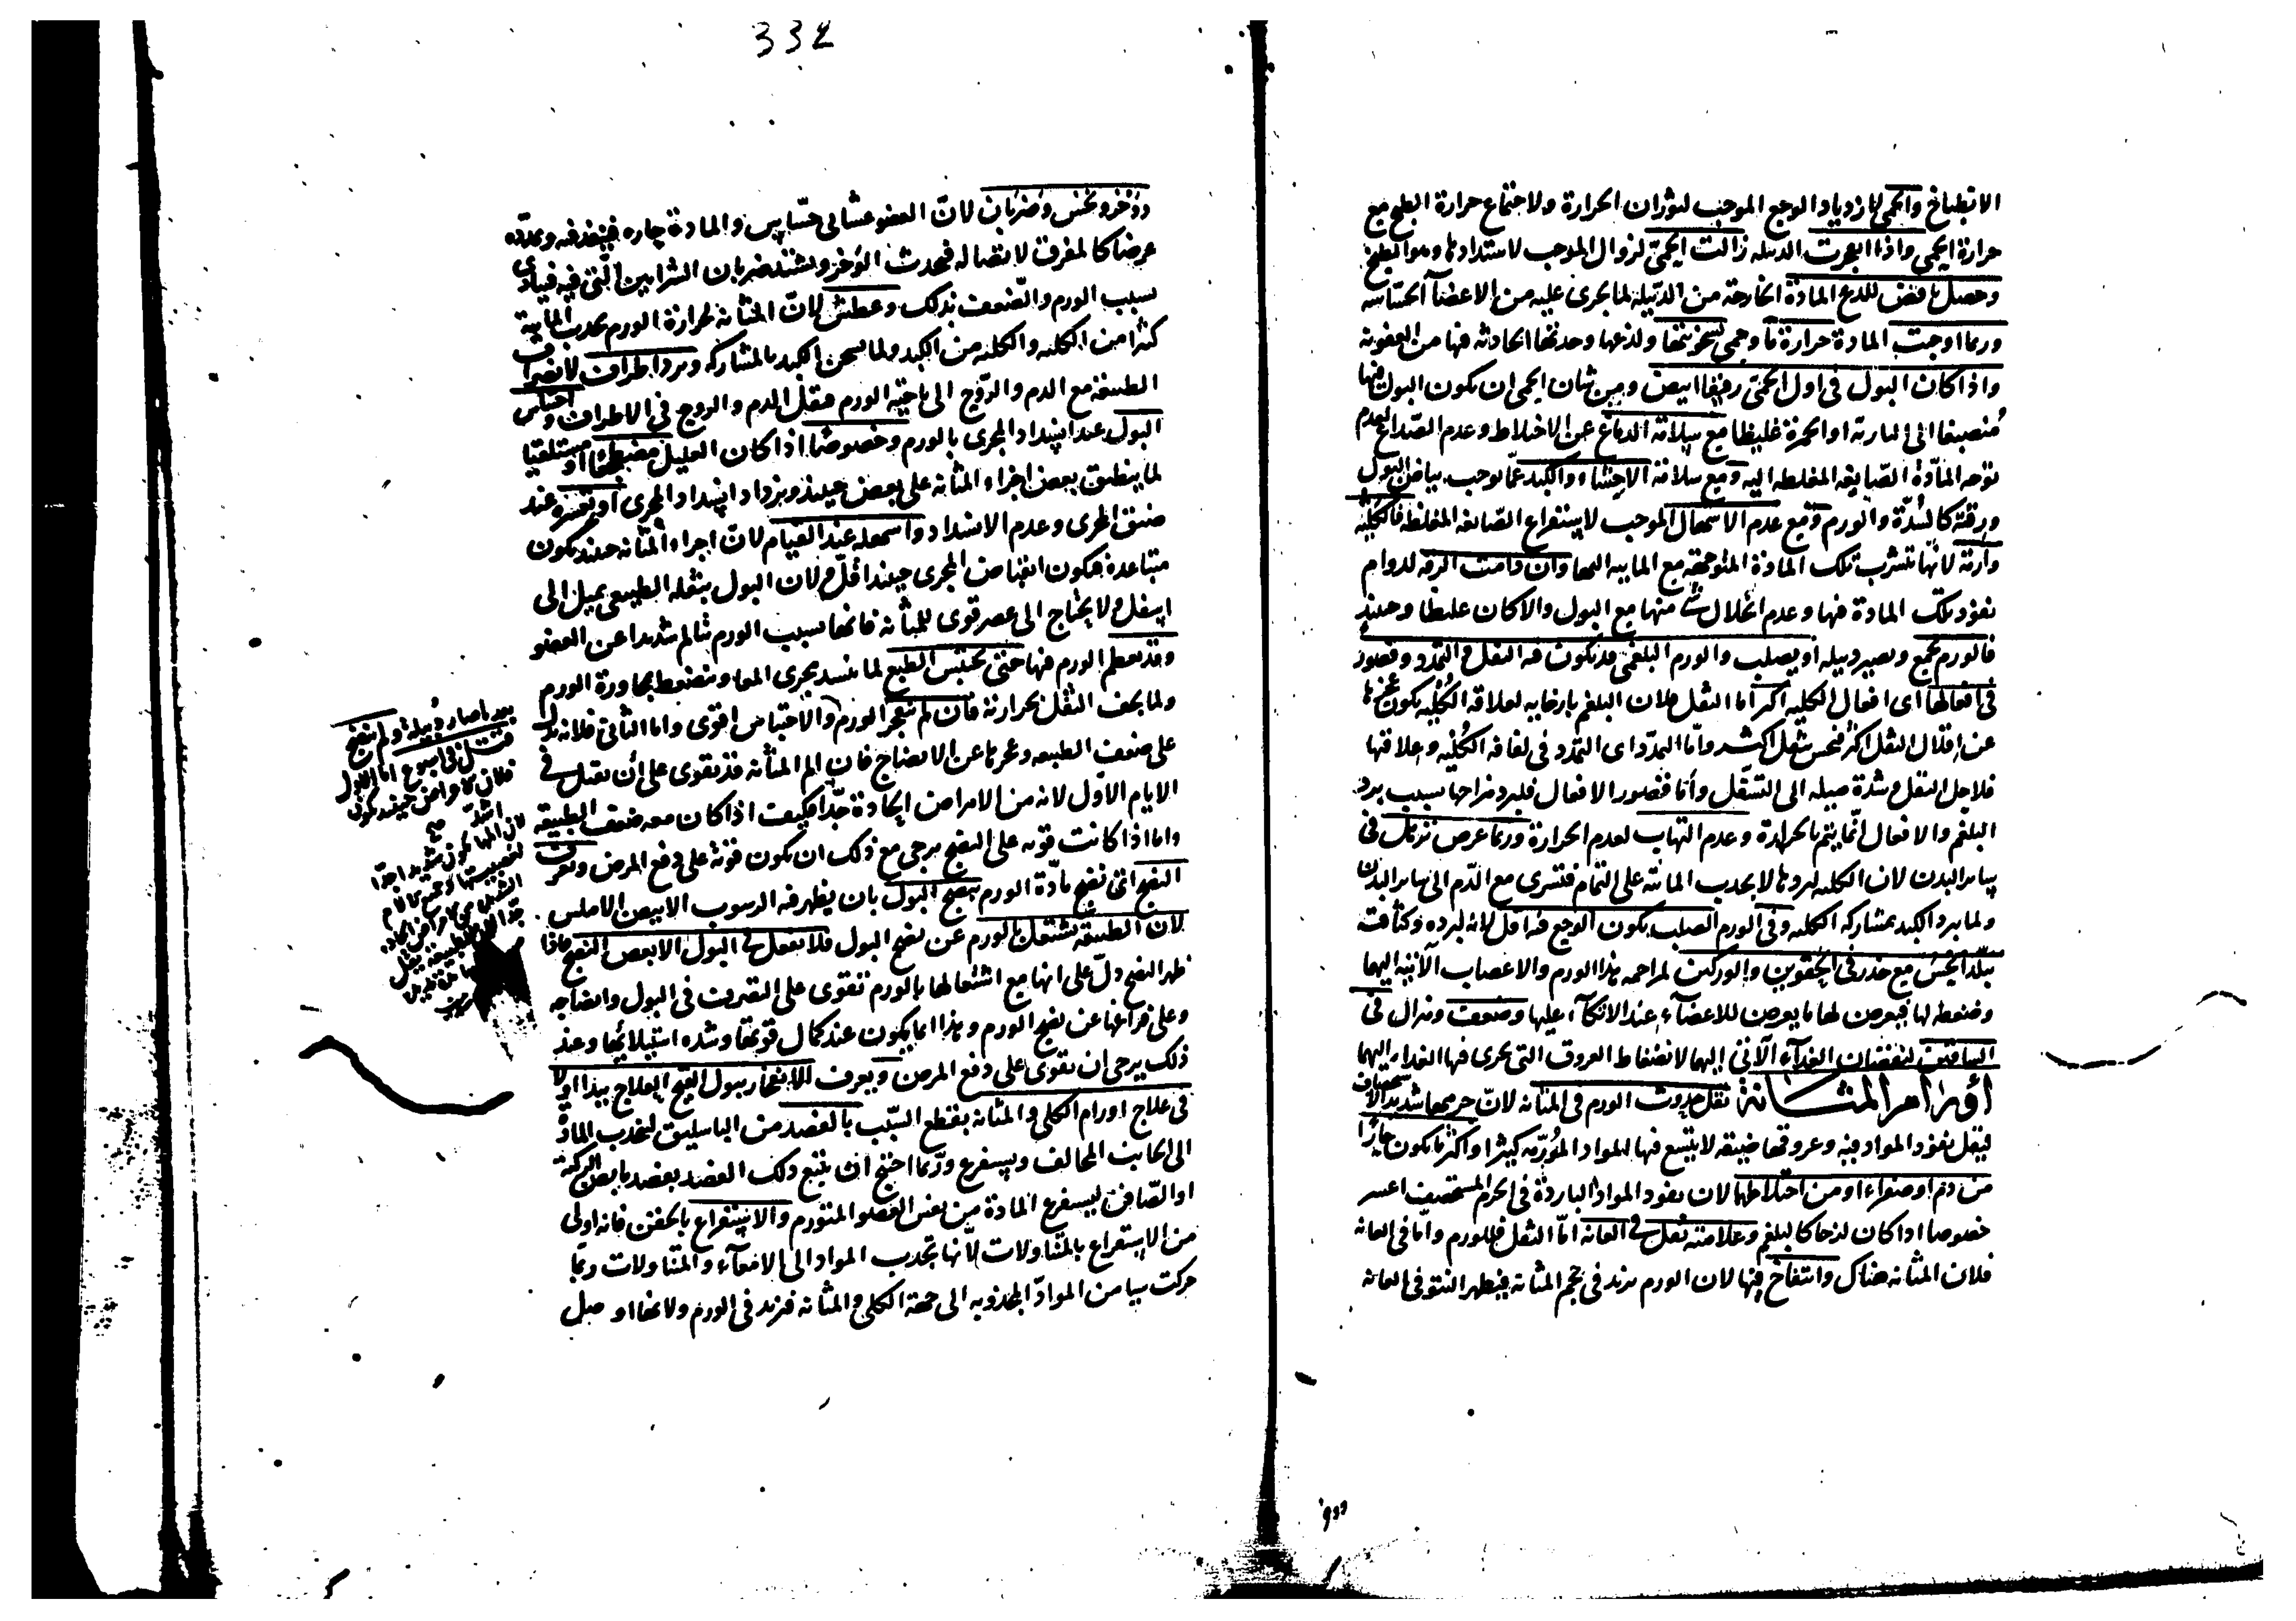 الانطباخ والحمى لازدياد الوجع الموجب لثوران الحرارة ولاجتماع حرارة الطبخ مع
حرارة الحمى واذا انفجرت الدبيلة زالت الحمى لزوال الموجب لاشتدادها وهو الطبخ
وحصل نافض للذع المادة الخارجة من الدبيلة لما يجرى عليه من الاعضآ الحساسه
وربما اوجبت المادة حرارة ما وحمى بسخونتها ولذعها وحدتها الحادثه فيها من العفونه
واذا كان البول فى اول الحمى رقيقا ابيض ومن شان الحمى ان يكون البول فيها
منصبغا الى النارية او الحمرة غليظا مع سلامة الدماغ عن الاختلاط وعدم الصداع لعدم
توجه المادة الصابغه المغلظه اليه ومع سلامة الاحشاء والكبد عما يوجب بياض البول
ورقته كالسدة والورم ومع عدم الاسهال الموجب لاستفراغ الصابغه المغلظه فالكلية
وارمة لانها تتشرب تلك المادة المتوجهة مع المايية اليها وان دامت الرقه لدوام
نفوذ تلك المادة فيها وعدم انحلال شئ منها مع البول والا كان غليظا وحينئذ
فالورم يجمع ويصير دبيله او يصلب والورم البلغمى قد يكون فيه الثقل والتمدد وقصور
فى افعالها اى افعال الكليه اكثر اما الثقل فلان البلغم بارخايه لعلاقة الكلية يكون عجزها
عن اقلال الثقل اكثر فتحس بثقل اكثر واما التمدد اى التمدد فى لفافه الكلية وعلاقتها
فلاجل الثقل وشدة ميله الى التسفل واما قصور الافعال فلبرد مزاجها بسبب برد
البلغم والافعال انما يتم بالحرارة وعدم التهاب لعدم الحرارة وربما عرض ترهل فى
ساير البدن لان الكليه لبردها لا يجذب المائية على التمام فتسرى مع الدم الى ساير البدن
ولما يبرد الكبد بمشاركة الكليه وفى الورم الصلب يكون الوجع فيه اقل لانه لبرده وكثافته
يبلد الحس مع خدر فى الحقوين والوركين لمزاحمه هذا الورم والاعصاب الآتية اليهما
وضغطه لها فيعرض لها ما يعرض للاعضآء عند الاتكآء عليها وضعف وهزال فى
الساقين لنقصان الغذآء الآتى اليهما لانضغاط العروق التى يجرى فيها الغذاء اليهما
اورام المثانة يقل حدوث الورم فى المثانه لان جرمها شديد الاستحصاف
فيقل نفوذ المواد فيه وعروقها ضيقه لا يتسع فيها للمواد المورمه كثيرا واكثر ما يكون حارا
من دم او صفراء او من اختلاطهما لان نفوذ المواد الباردة فى الجرم المستحصف اعسر
خصوصا اذا كان لزجا كالبلغم وعلامته ثقل فى العانه اما الثقل فللورم واما فى العانه
فلان المثانه هناك وانتفاخ فيها لان الورم يزيد فى حجم المثانه فيظهر النتو فى العانه
332
ووخز ونخس وضربان لان العضو عشائى حساس والمادة حاره فينفذ فيه ويمدده
عرضا كالمفرق لاتصاله فيحدث الوخز ويشتد ضربان الشرايين التى فيه فيتاذى
بسبب الورم والضعف بذلك وعطش لان المثانه لحرارة الورم يجذب المايية
كثيرا من الكليه والكليه من الكبد ولما يسخن الكبد بالمشاركه وبرد اطراف لانصراف
الطبيعة مع الدم والروح الى ناحية الورم فيقل الدم والروح فى الاطراف واحتباس
البول عند انسداد المجرى بالورم وخصوصا اذا كان العليل مضطجعا او مستلقيا
لما ينطبق بعض اجزاء المثانه على بعض حينئذ ويزداد انسداد المجرى او تعسره عند
ضيق المجرى وعدم الانسداد واسهله عند القيام لان اجزاء المثانه حينئذ يكون
متباعدة فيكون انقباض المجرى حينئذ اقل ولان البول بثقله الطبيعى يميل الى
اسفل ولا يحتاج الى عصر قوى للمثانه فانها بسبب الورم تتالم شديدا عن العضو
وقد يعظم الورم فيها حتى يحتبس الطبع لما ينسد مجرى المعا وينضغط بمجاورة الورم
ولما يجف الثفل بحرارته فان لم ينفجر الورم والاحتباس اقوى واما الثانى فلانه يدل
على ضعف الطبيعه وعجزها عن الانضاج فان الم المثانه قد يقوى على ان يقتل فى
الايام الاول لانه من الامراض الحادة جدا فكيف اذا كان معه ضعف الطبيعة
واما اذا كانت قويه على النضج يرجى مع ذلك ان يكون قوية على دفع المرض ويعرف
النضج اى نضج مادة الورم بنضج البول بان يظهر فيه الرسوب الابيض الاملس
لان الطبيعة تشتغل بالورم عن نضج البول فلا يفعل فى البول الا بعض النضج فاذا
ظهر النضج دل على انها مع اشتغالها بالورم تقوى على التصرف فى البول وانضاجه
وعلى فراغها عن نضج الورم وهذا انما يكون عند كمال قوتها وشدة استيلائها وعند
ذلك يرجى ان تقوى على دفع المرض ويعرف الانفجار ببول القيح العلاج يبدا اولا
فى علاج اورام الكلى والمثانه بقطع السبب بالفصد من الباسليق لتجذب المادة
الى الجانب المخالف ويستفرغ وربما احتيج ان يتبع ذلك الفصد بفصد مابض الركبة
او الصافن ليستفرغ المادة من نفس العضو المتورم والاستفراغ بالحقن فانه اولى
من الاستفراغ بالمتناولات لانها تجذب المواد الى الامعآء والمتناولات ربما
حركت شيا من المواد المجذوبه الى جهة الكلى والمثانه فيزيد فى الورم ولانها او ميل
بعد ما صار دبيلة ولم ينضج
قتل فى اسبوع اما الاول